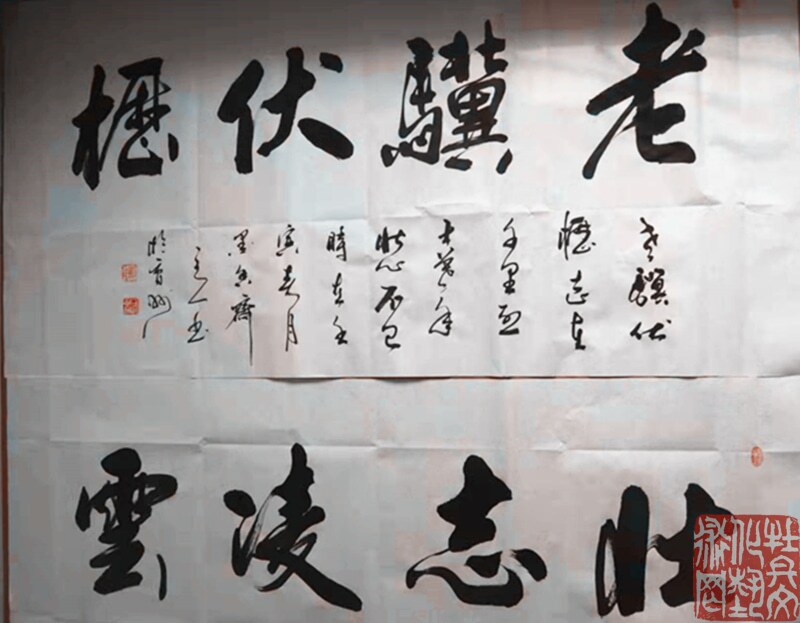 老驥伏櫪
老驥伏
櫪志在
千里烈
士暮年
壯心不已
時在壬
寅春月
墨香齋
書
壯志凌雲